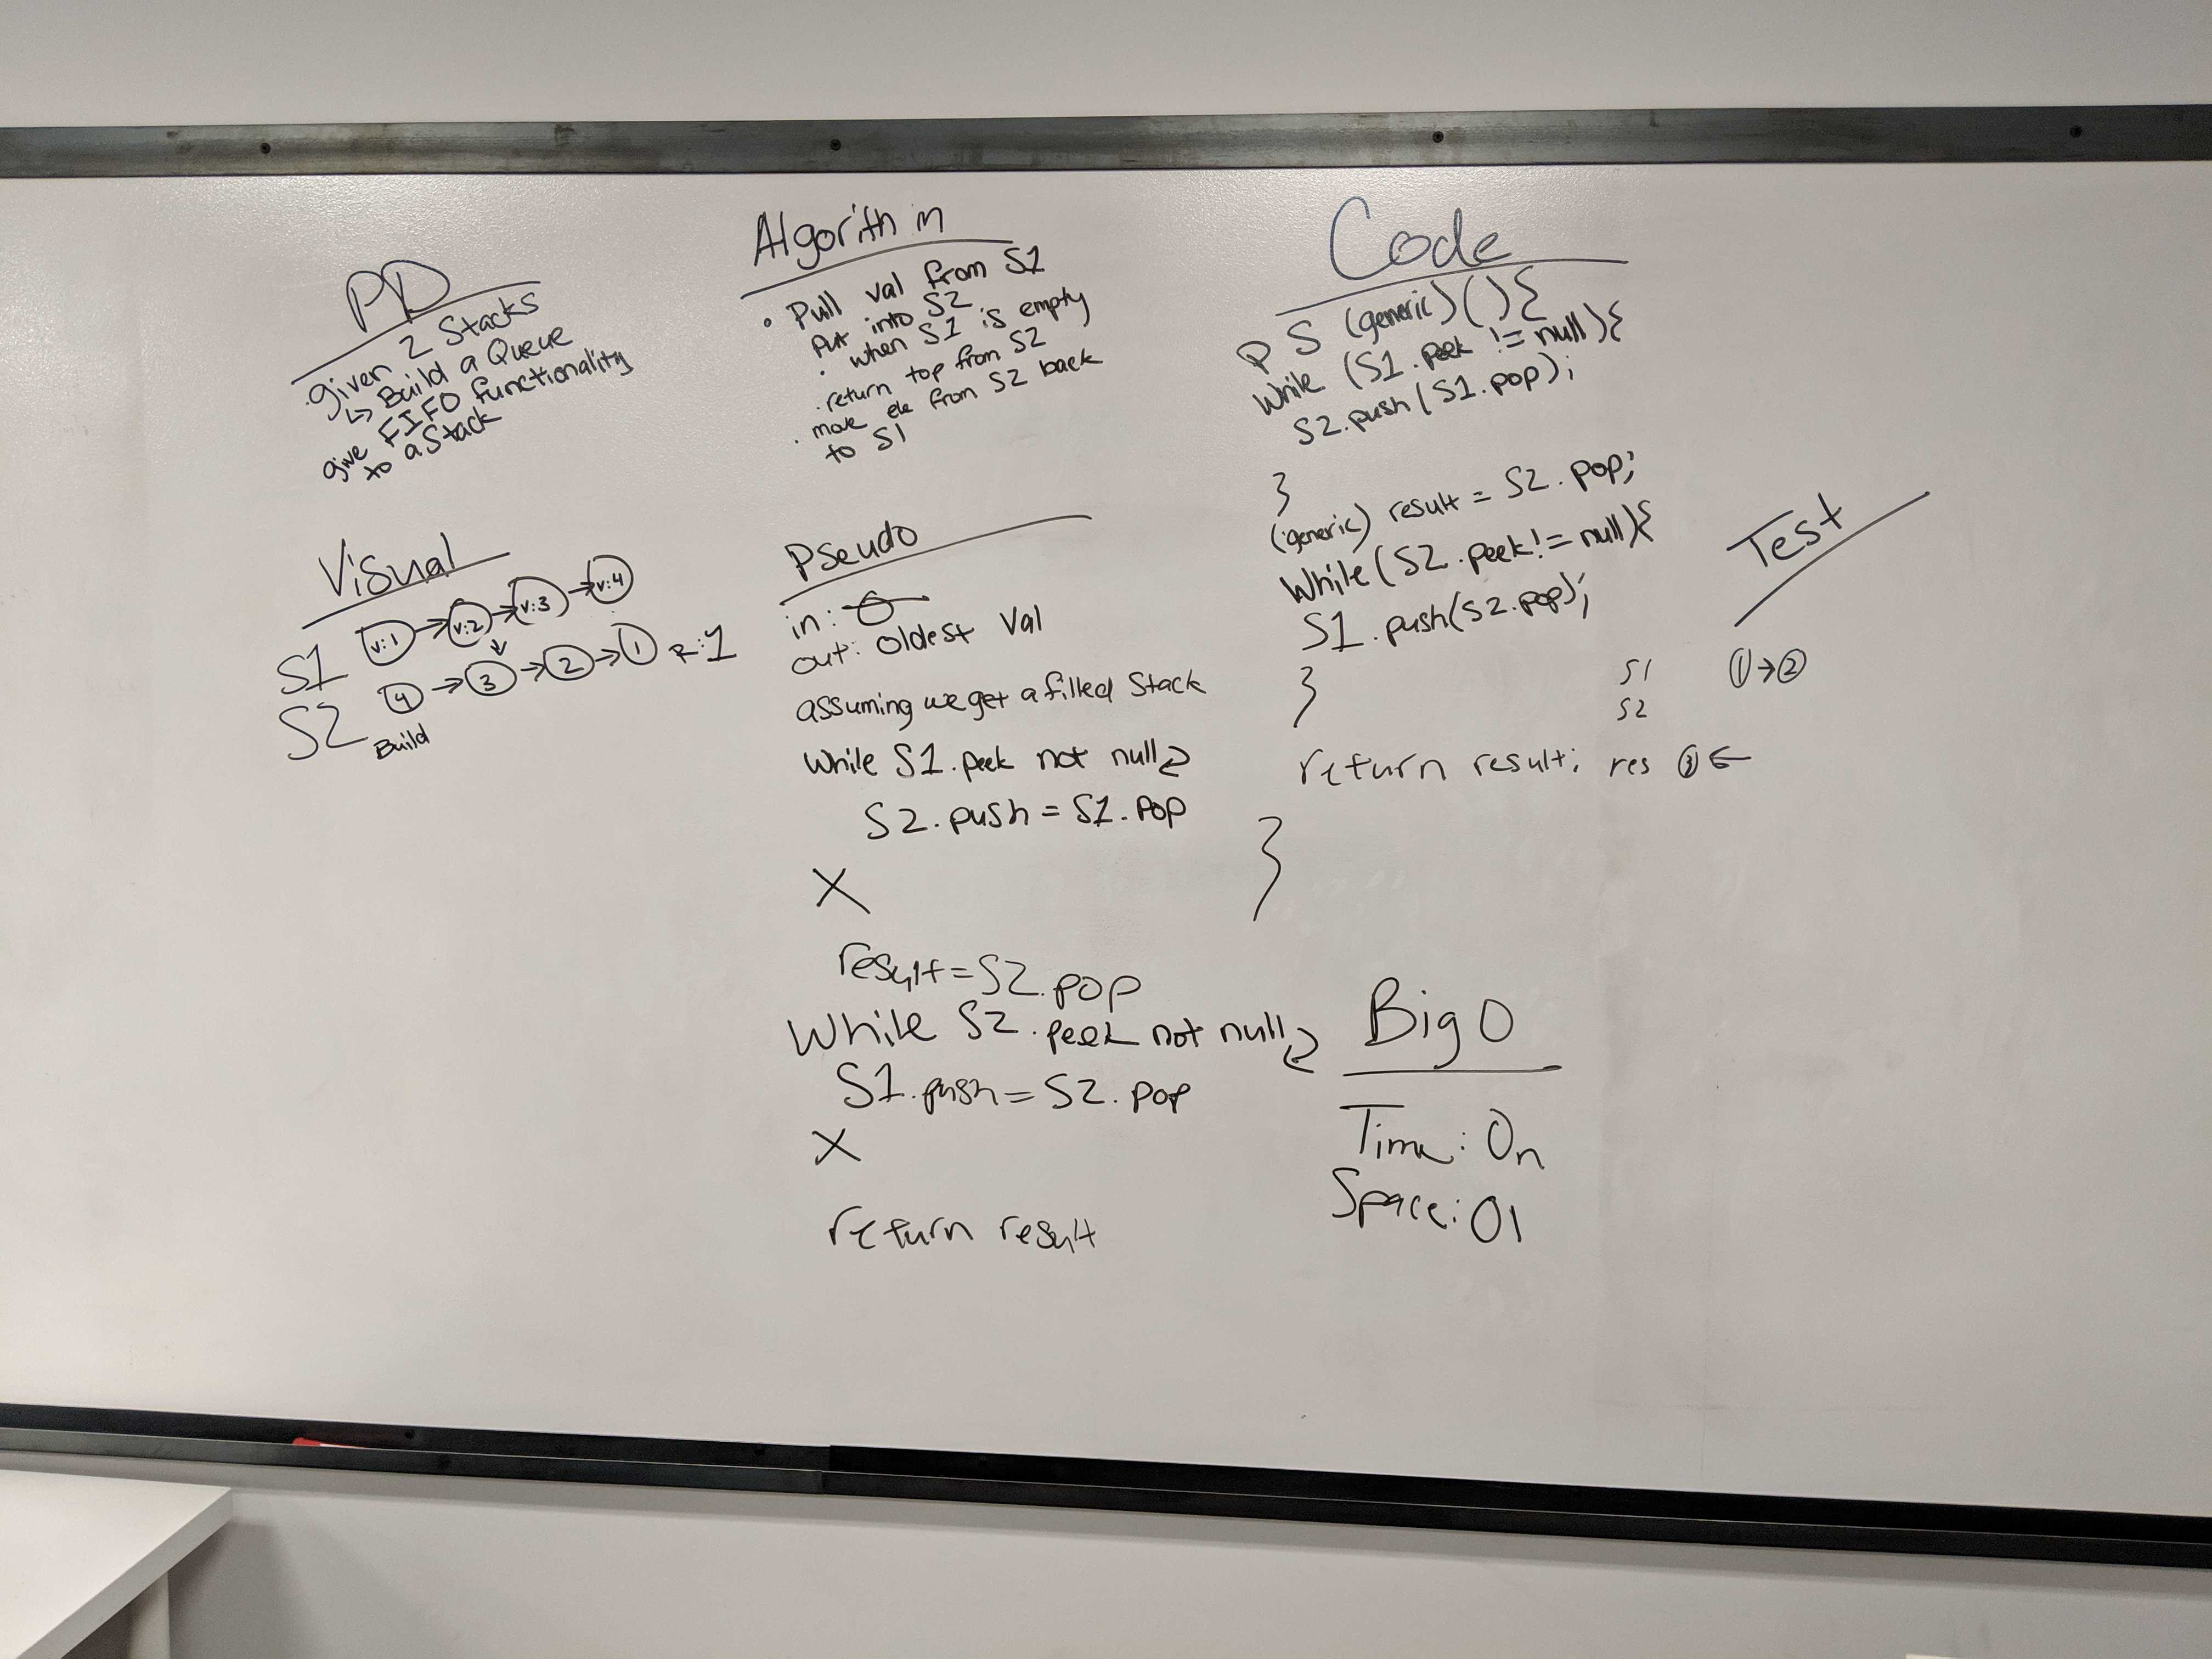 PD
· given 2 Stacks
↳ Build a Queue
give FIFO functionality
to a Stack
Visual
S1 v:1 → v:2 → v:3 → v:4
S2 4 → 3 → 2 → 1 R:1
Build
Algorithm
· Pull val from S1
Put into S2
· when S1 is empty
· return top from S2
· move ele from S2 back
to S1
Pseudo
in:
out: oldest Val
assuming we get a filled Stack
While S1.peek not null
S2.push = S1.pop
X
result = S2.pop
While S2.peek not null
S1.push = S2.pop
X
return result
Code
P S (generic)(){
While (S1.peek != null){
S2.push(S1.pop);
}
(generic) result = S2.pop;
While(S2.peek != null){
S1.push(S2.pop);
}
return result;
}
Test
S1 1 → 2
S2
res 3 ←
Big O
Time: On
Space: O1